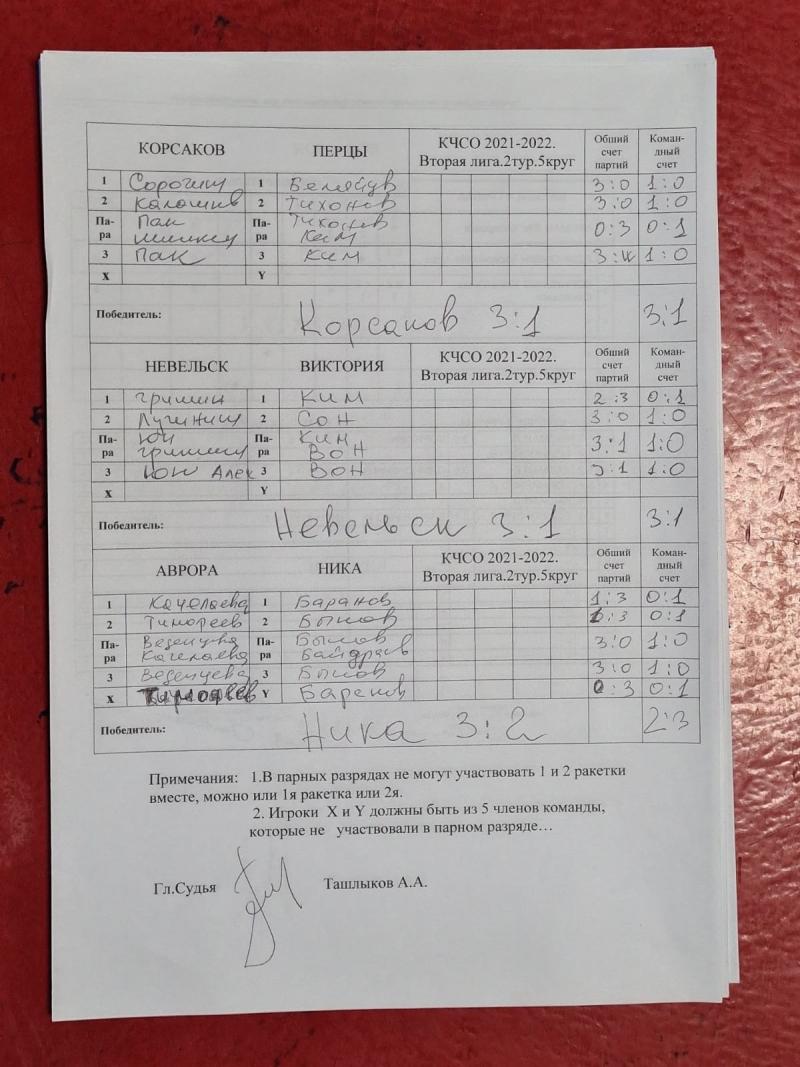 КОРСАКОВ ПЕРЦЫ КЧСО 2021-2022. Вторая лига.2тур.5круг Общий счет партий Коман-дный счет
1 1 3:0 1:0
2 2 Тихонов 3:0 1:0
Па-ра Пак Па-ра Тихонов 0:3 0:1
Ким
3 Пак 3 Ким 1:0
X Y
Победитель: Корсаков 3:1 3:1
НЕВЕЛЬСК ВИКТОРИЯ КЧСО 2021-2022. Вторая лига.2тур.5круг Общий счет партий Коман-дный счет
1 Гришин 1 Ким 2:3 0:1
2 2 Сон 3:0 1:0
Па-ра Юн Па-ра Ким 3:1 1:0
Вон
3 Юн Алек 3 Вон 3:1 1:0
X Y
Победитель: Невельск 3:1 3:1
АВРОРА НИКА КЧСО 2021-2022. Вторая лига.2тур.5круг Общий счет партий Коман-дный счет
1 1 Баранов 1:3 0:1
2 Тимофеев 2 Быков 0:1
Па-ра Па-ра 3:0 1:0
3 Веденцева 3 3:0 1:0
X Тимофеев Y Баранов 0:3 0:1
Победитель: Ника 3:2 2:3
Примечания: 1.В парных разрядах не могут участвовать 1 и 2 ракетки
вместе, можно или 1я ракетка или 2я.
2. Игроки X и Y должны быть из 5 членов команды,
которые не участвовали в парном разряде…
Гл.Судья Ташлыков А.А.